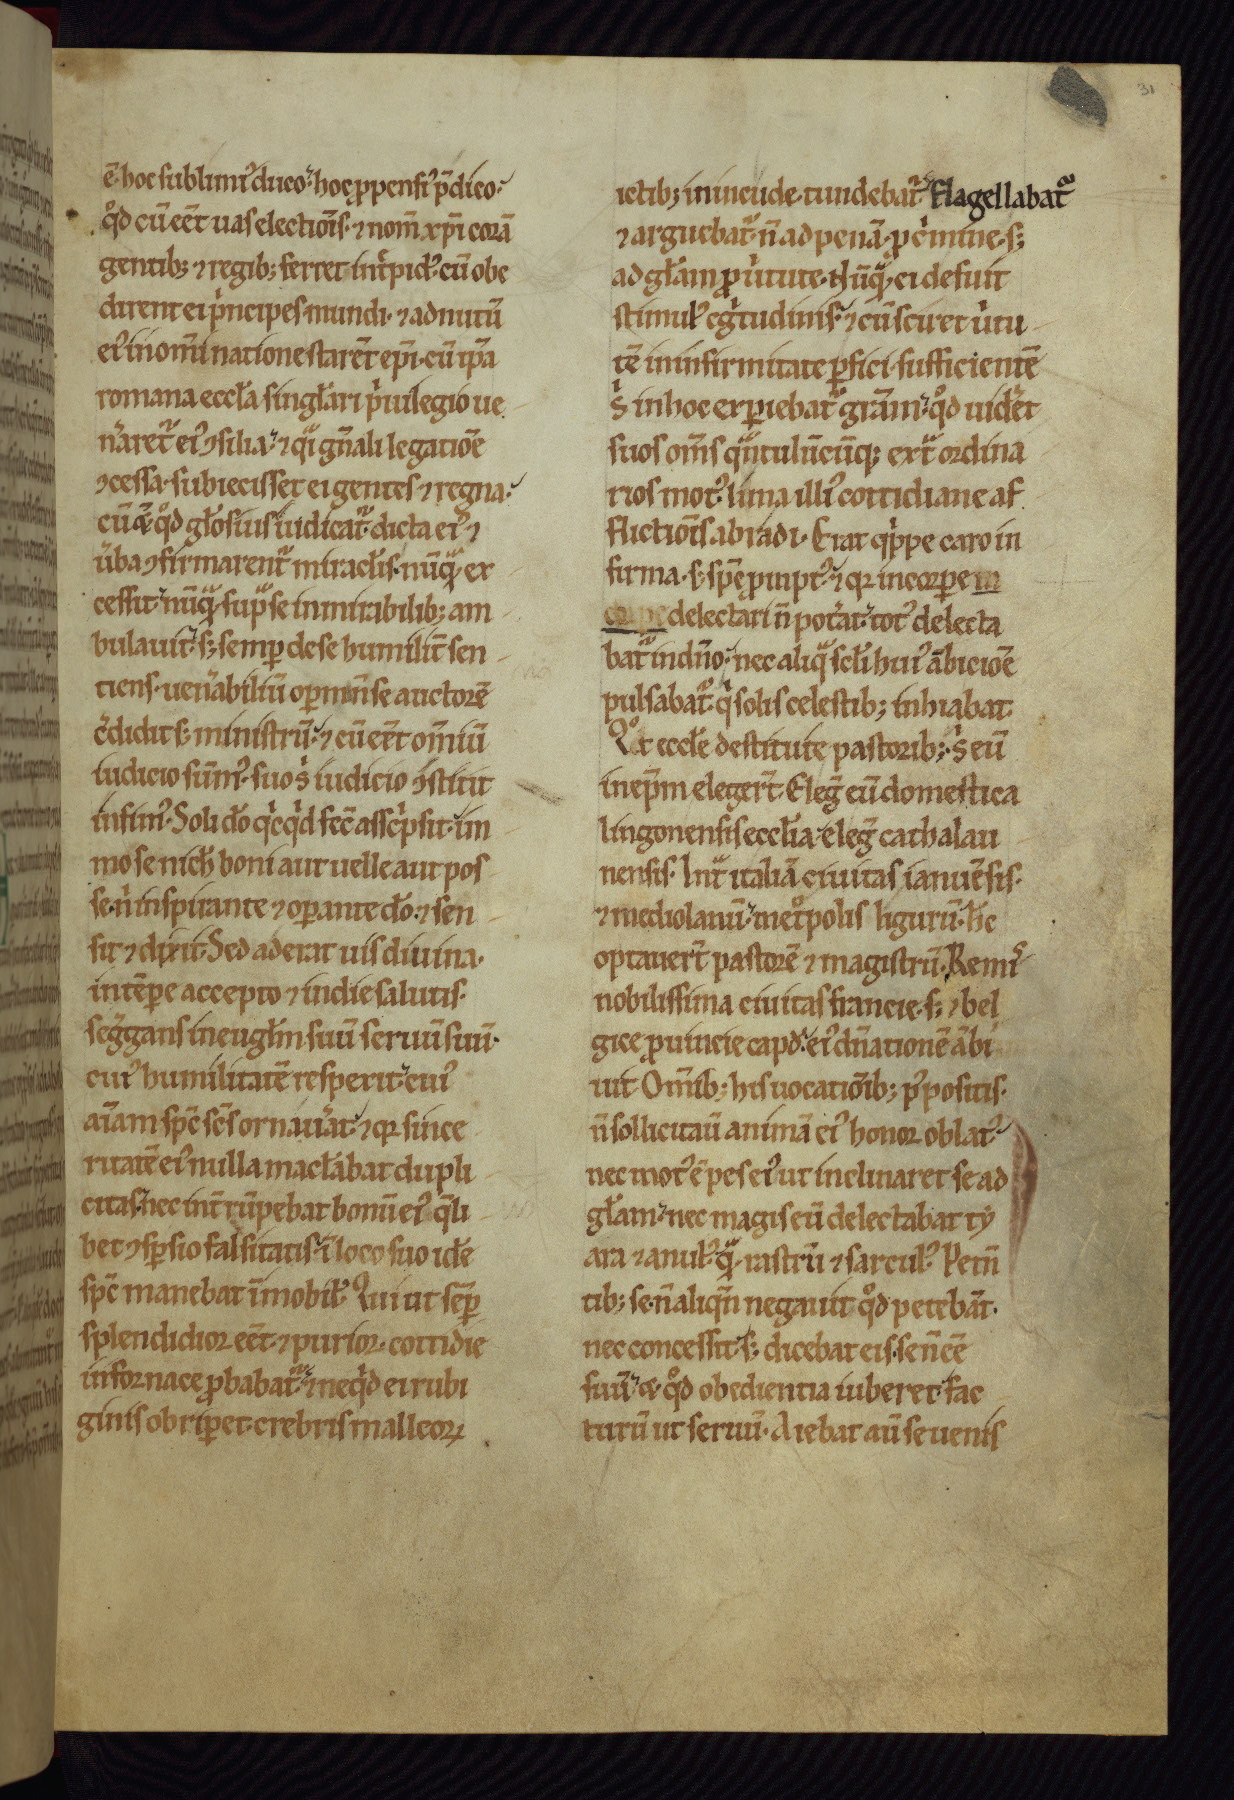 31
ē· hoc sublimiꝰ duco· hoc ꝓpensiꝰ p̄dico·
qͦd cū eēt uas electiōis· ⁊ nom̄ xp̄i corā
gentib; ⁊ regib; ferret int̄pidꝰ· cū obe
dirent ei pͥncipes mundi· ⁊ ad nutū
eiꝰ in om̄i natione starēt ep̄i· cū ip̄a
romana eccl̄a singl̄ari pͥuilegio ue
n̄aret᷑ eiꝰ ꝯsilia· ⁊ qͣi gn̄ali legatiōe
ꝯcessa· subiecisset ei gentes ⁊ regna·
cū ⁊ qͦd gl̄osiuis iudicat᷑· dicta eiꝰ ⁊
ūba ꝯfirmarent᷑ miracl̄is· nūqͣ ex
cessit· nūqͣ sup̄ se in mirabilib; am
bulauit· s; semꝑ de se humilit̄ sen
tiens· uen̄abiliū oꝑum n̄ se auctorē
cͥdidit s· ministrū· ⁊ cū eēt om̄iū
iudicio sūmꝰ· suo sͥ iudicio ꝯstitit
infimꝰ· Soli dō qͥcqͥd fec̄ asscͥpsit· im
mo se nich̄ boni aut uelle aut pos
se· nͥ inspirante ⁊ oꝑante dō· ⁊ sen
sit ⁊ dixit· Sed aderat uis diuina·
in tēpe accepto ⁊ in die salutis·
seg̃gans in eugl̄m suū seruū suū·
cuiꝰ humilitatē respexit· cuiꝰ
aīam sp̄c sc̄s ornau̓at· ⁊ qr since
ritatē eiꝰ nulla macl̄abat dupli
citas· nec int̄rūpebat bonū eiꝰ qͣli
bet ꝯsꝑsio falsitatis· ī loco suo idē
sp̄c manebat īmobilꝭ· Qui ut sēꝑ
splendidior eēt· ⁊ purior· cottidie
in fornace ꝓbabat᷑· ⁊ ne qͥd ei rubi
ginis obriꝑet· crebris malleoꝝ
ictib; in incude tundebat᷑· flagellabat᷑
⁊ arguebat᷑· n̄ ad penā ꝓ cͥmine· s;
ad gl̄am ꝓ u̓tute· Nūqͣ ei defuit
stimulꝰ egͥtudinis· ⁊ cū sciret u̓tu
tē in infirmitate ꝑfici· sufficientē
sͥ in hoc exꝑiebat᷑ gr̄am· qͦd uidēt
suos om̄s qͣntulūcūq; ext̄ ordina
rios motꝰ lima illiꝰ cottidiane af
flictiōis abradi· Erat qͥppe caro in
firma· s· sp̄c ꝓmptꝰ· ⁊ qr in corꝑe m
delectari n̄ pot̓at· totꝰ delecta
bat᷑ in dn̄o· nec aliqͣ scl̄i huiꝰ ābiciōe
pulsabat᷑· qͥ solis celestib; inhiabat·
Qͦt eccl̄e destitute pastorib;· sͥ eū
in ep̄m elegert̄· Eleg̃ eū domestica
lingonensis eccl̄ia· eleg̃ cathalau
nensis· Int᷑ italiā ciuitas ianuēsis·
⁊ mediolanū· met̓polis ligurū· hē
optauert̄ pastorē ⁊ magistrū· Remꝰ
nobilissima ciuitas francie· s; ⁊ bel
gice ꝓuincie capđ· eiꝰ dn̄ationē ābi
uit· Om̄ib; his uocatiōib; pꝰpositis·
n̄ sollicitaū animā eiꝰ honor oblatꝰ
nec motꝰ ē pes eiꝰ ut inclinaret se ad
gl̄am· nec magis eū delectabat ty
ara ⁊ anulꝰ qͣ rastrū ⁊ sarculꝰ· Petn̄
tib; se· n̄ aliqn̄ negauit qͦd petebāt·
nec concessit· s; dicebat eis· se n̄ eē
suū· ⁊ qͦd obedientia iuberet fac
turū ut seruū· Aiebat aū se uenis